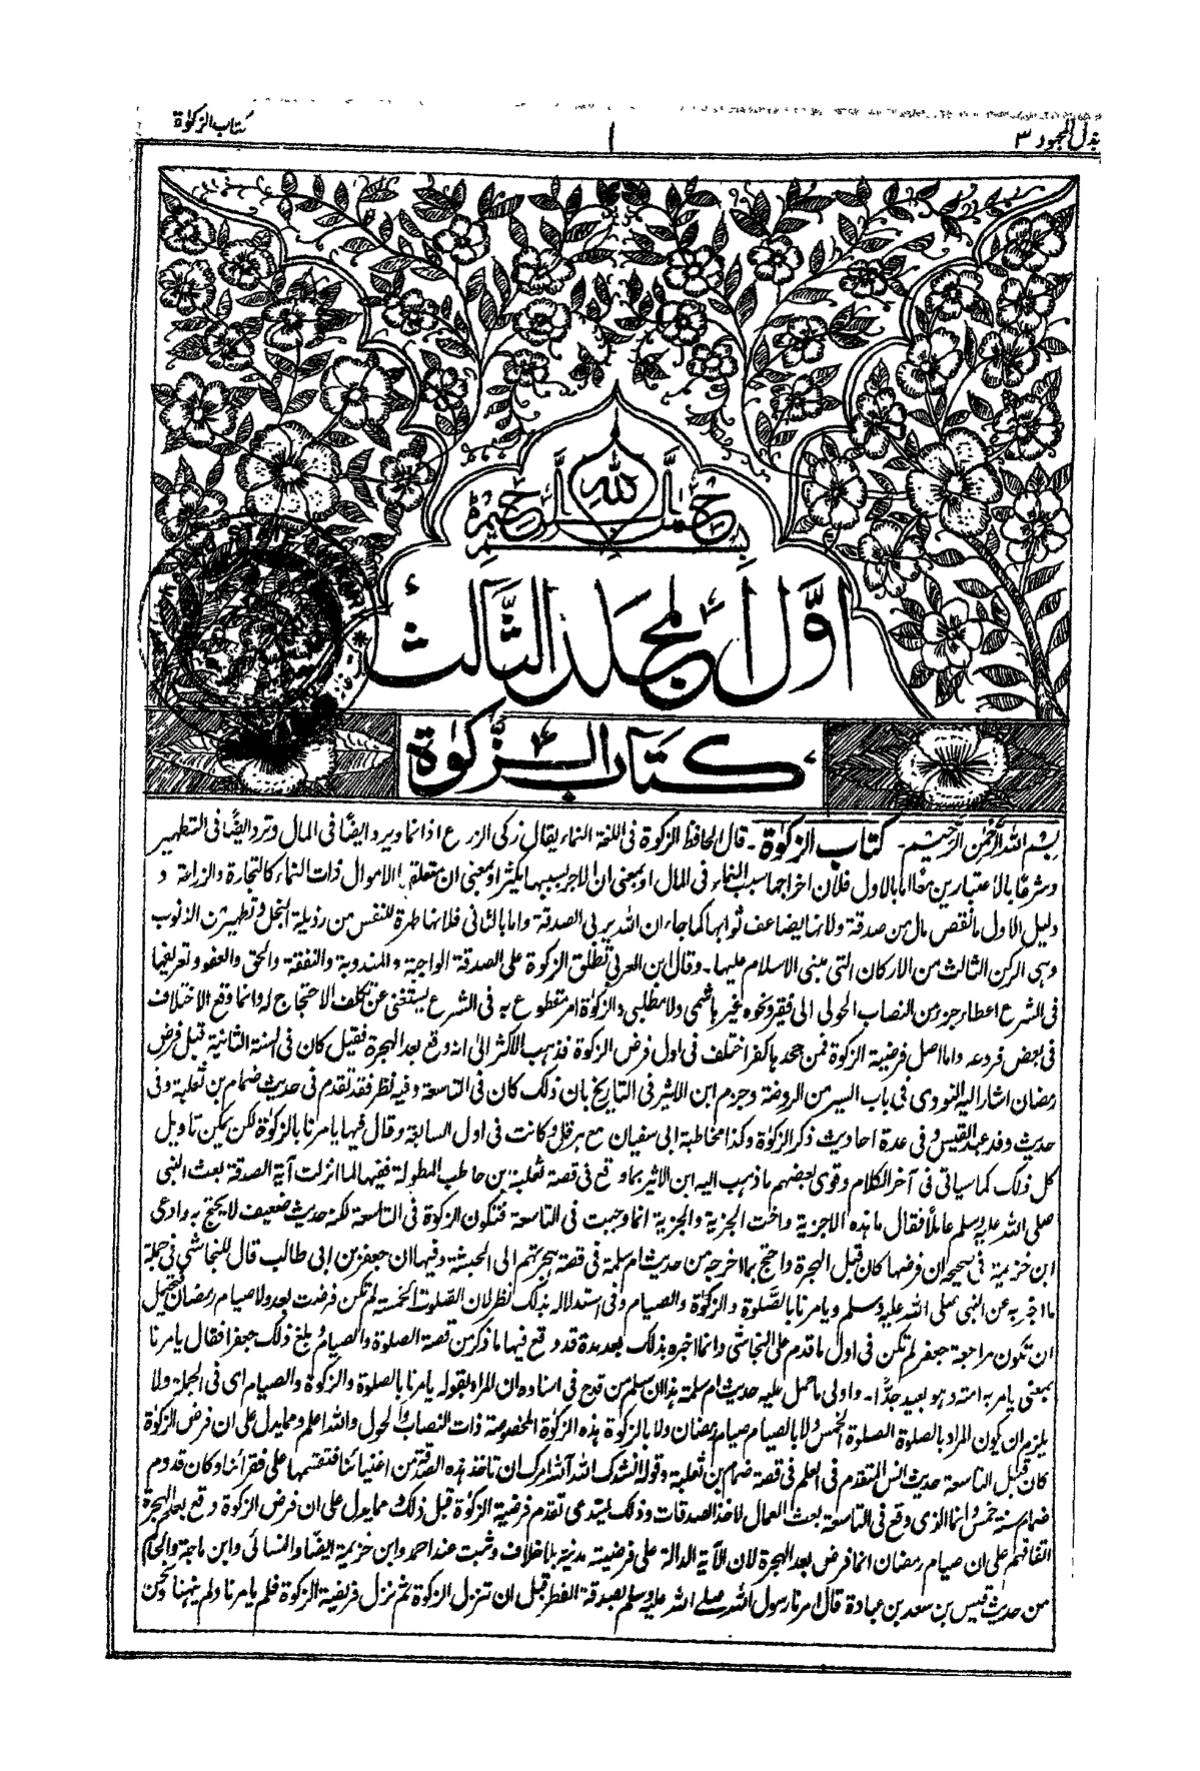 بذل المجهود ٣
١
كتاب الزكوٰة
بسم الله الرحمن الرحيم
اوّل المجلد الثالث
كتاب الزكوٰة
بسم الله الرحمن الرحيم - كتاب الزكوٰة - قال الحافظ الزكوة فى اللغة النماء يقال زكى الزرع اذا نما ويرد ايضًا فى المال وترد ايضًا فى التطهير
وشرعًا بالاعتبارين معًا اما بالاول فلان اخراجها سبب النماء فى المال او بمعنى ان الاجر بسببها يكثر او بمعنى ان متعلقها الاموال ذات النماء كالتجارة والزراعة و
دليل الاول ما نقص مال من صدقة ولانها يضاعف ثوابها كما جاء ان الله يربى الصدقة واما بالثانى فلانها طهرة للنفس من رذيلة البخل وتطهير من الذنوب
وهى الركن الثالث من الاركان التى بنى الاسلام عليها - وقال ابن العربى تطلق الزكوة على الصدقة الواجبة والمندوبة والنفقة والحق والعفو وتعريفها
فى الشرع اعطاء جزء من النصاب الحولى الى فقير ونحوه غير هاشمى ولا مطلبى والزكوٰة امر مقطوع به فى الشرع يستغنى عن تكلف الاحتجاج له وانما وقع الاختلاف
فى بعض فروعه واما اصل فرضية الزكوة فمن جحدها كفر اختلف فى اول فرض الزكوة فذهب الاكثر الى انه وقع بعد الهجرة فقيل كان فى السنة الثانية قبل فرض
رمضان اشار اليه النووى فى باب السير من الروضة وجزم ابن الاثير فى التاريخ بان ذلك كان فى التاسعة وفيه نظر فقد تقدم فى حديث ضمام بن ثعلبة وفى
حديث وفد عبد القيس وفى عدة احاديث ذكر الزكوٰة وكذا مخاطبة ابى سفيان مع هرقل وكانت فى اول السابعة وقال فيها يامرنا بالزكوٰة لكن يمكن تاويل
كل ذلك كما سياتى فى آخر الكلام وقوى بعضهم ما ذهب اليه ابن الاثير بما وقع فى قصة ثعلبة بن حاطب المطولة ففيها لما انزلت آية الصدقة بعث النبى
صلى الله عليه وسلم عاملًا فقال ما هذه الا جزية واخت الجزية والجزية انما وجبت فى التاسعة فتكون الزكوة فى التاسعة لكنه حديث ضعيف لا يحتج به وادعى
ابن خزيمة فى صحيحه ان فرضها كان قبل الهجرة واحتج بما اخرجه من حديث ام سلمة فى قصة هجرتهم الى الحبشة وفيها ان جعفر بن ابى طالب قال للنجاشى فى جملة
ما اخبره به عن النبى صلى الله عليه وسلم ويامرنا بالصلوٰة والزكوٰة والصيام وفى استدلاله بذلك نظر لان الصلوات الخمسة لم تكن فرضت بعد ولا صيام رمضان فيحتمل
ان تكون مراجعة جعفر لم تكن فى اول ما قدم على النجاشى وانما اخبره بذلك بعد مدة قد وقع فيها ما ذكر من قصة الصلوة والصيام و بلغ ذلك جعفرا فقال يامرنا
بمعنى يامر به امته وهو بعيد جدًّا - واولى ما حمل عليه حديث ام سلمة هذا ان سلم من قدح فى اسناده ان المراد بقوله يامرنا بالصلوة والزكوة والصيام اى فى الجملة ولا
يلزم ان يكون المراد بالصلوة الصلوة الخمس ولا بالصيام صيام رمضان ولا بالزكوة هذه الزكوٰة المخصوصة ذات النصاب والحول والله اعلم ومما يدل على ان فرض الزكوٰة
كان قبل التاسعة حديث انس المتقدم فى العلم فى قصة ضمام بن ثعلبة وقوله انشدك الله آلله امرك ان تاخذ هذه الصدقة من اغنيائنا فتقسمها على فقرائنا وكان قدوم
ضمام سنة خمس وانما الذى وقع فى التاسعة بعث العمال لاخذ الصدقات وذلك يستدعى تقدم فرضية الزكوٰة قبل ذلك ومما يدل على ان فرض الزكوة وقع بعد الهجرة
اتفاقهم على ان صيام رمضان انما فرض بعد الهجرة لان الآية الدالة على فرضيته مدنية بلا خلاف وثبت عند احمد وابن خزيمة ايضًا والنسائى وابن ماجة والحاكم
من حديث قيس بن سعد بن عبادة قال امرنا رسول الله صلى الله عليه وسلم بصدقة الفطر قبل ان تنزل الزكوة ثم نزل فريضة الزكوة فلم يامرنا ولم ينهنا ونحن